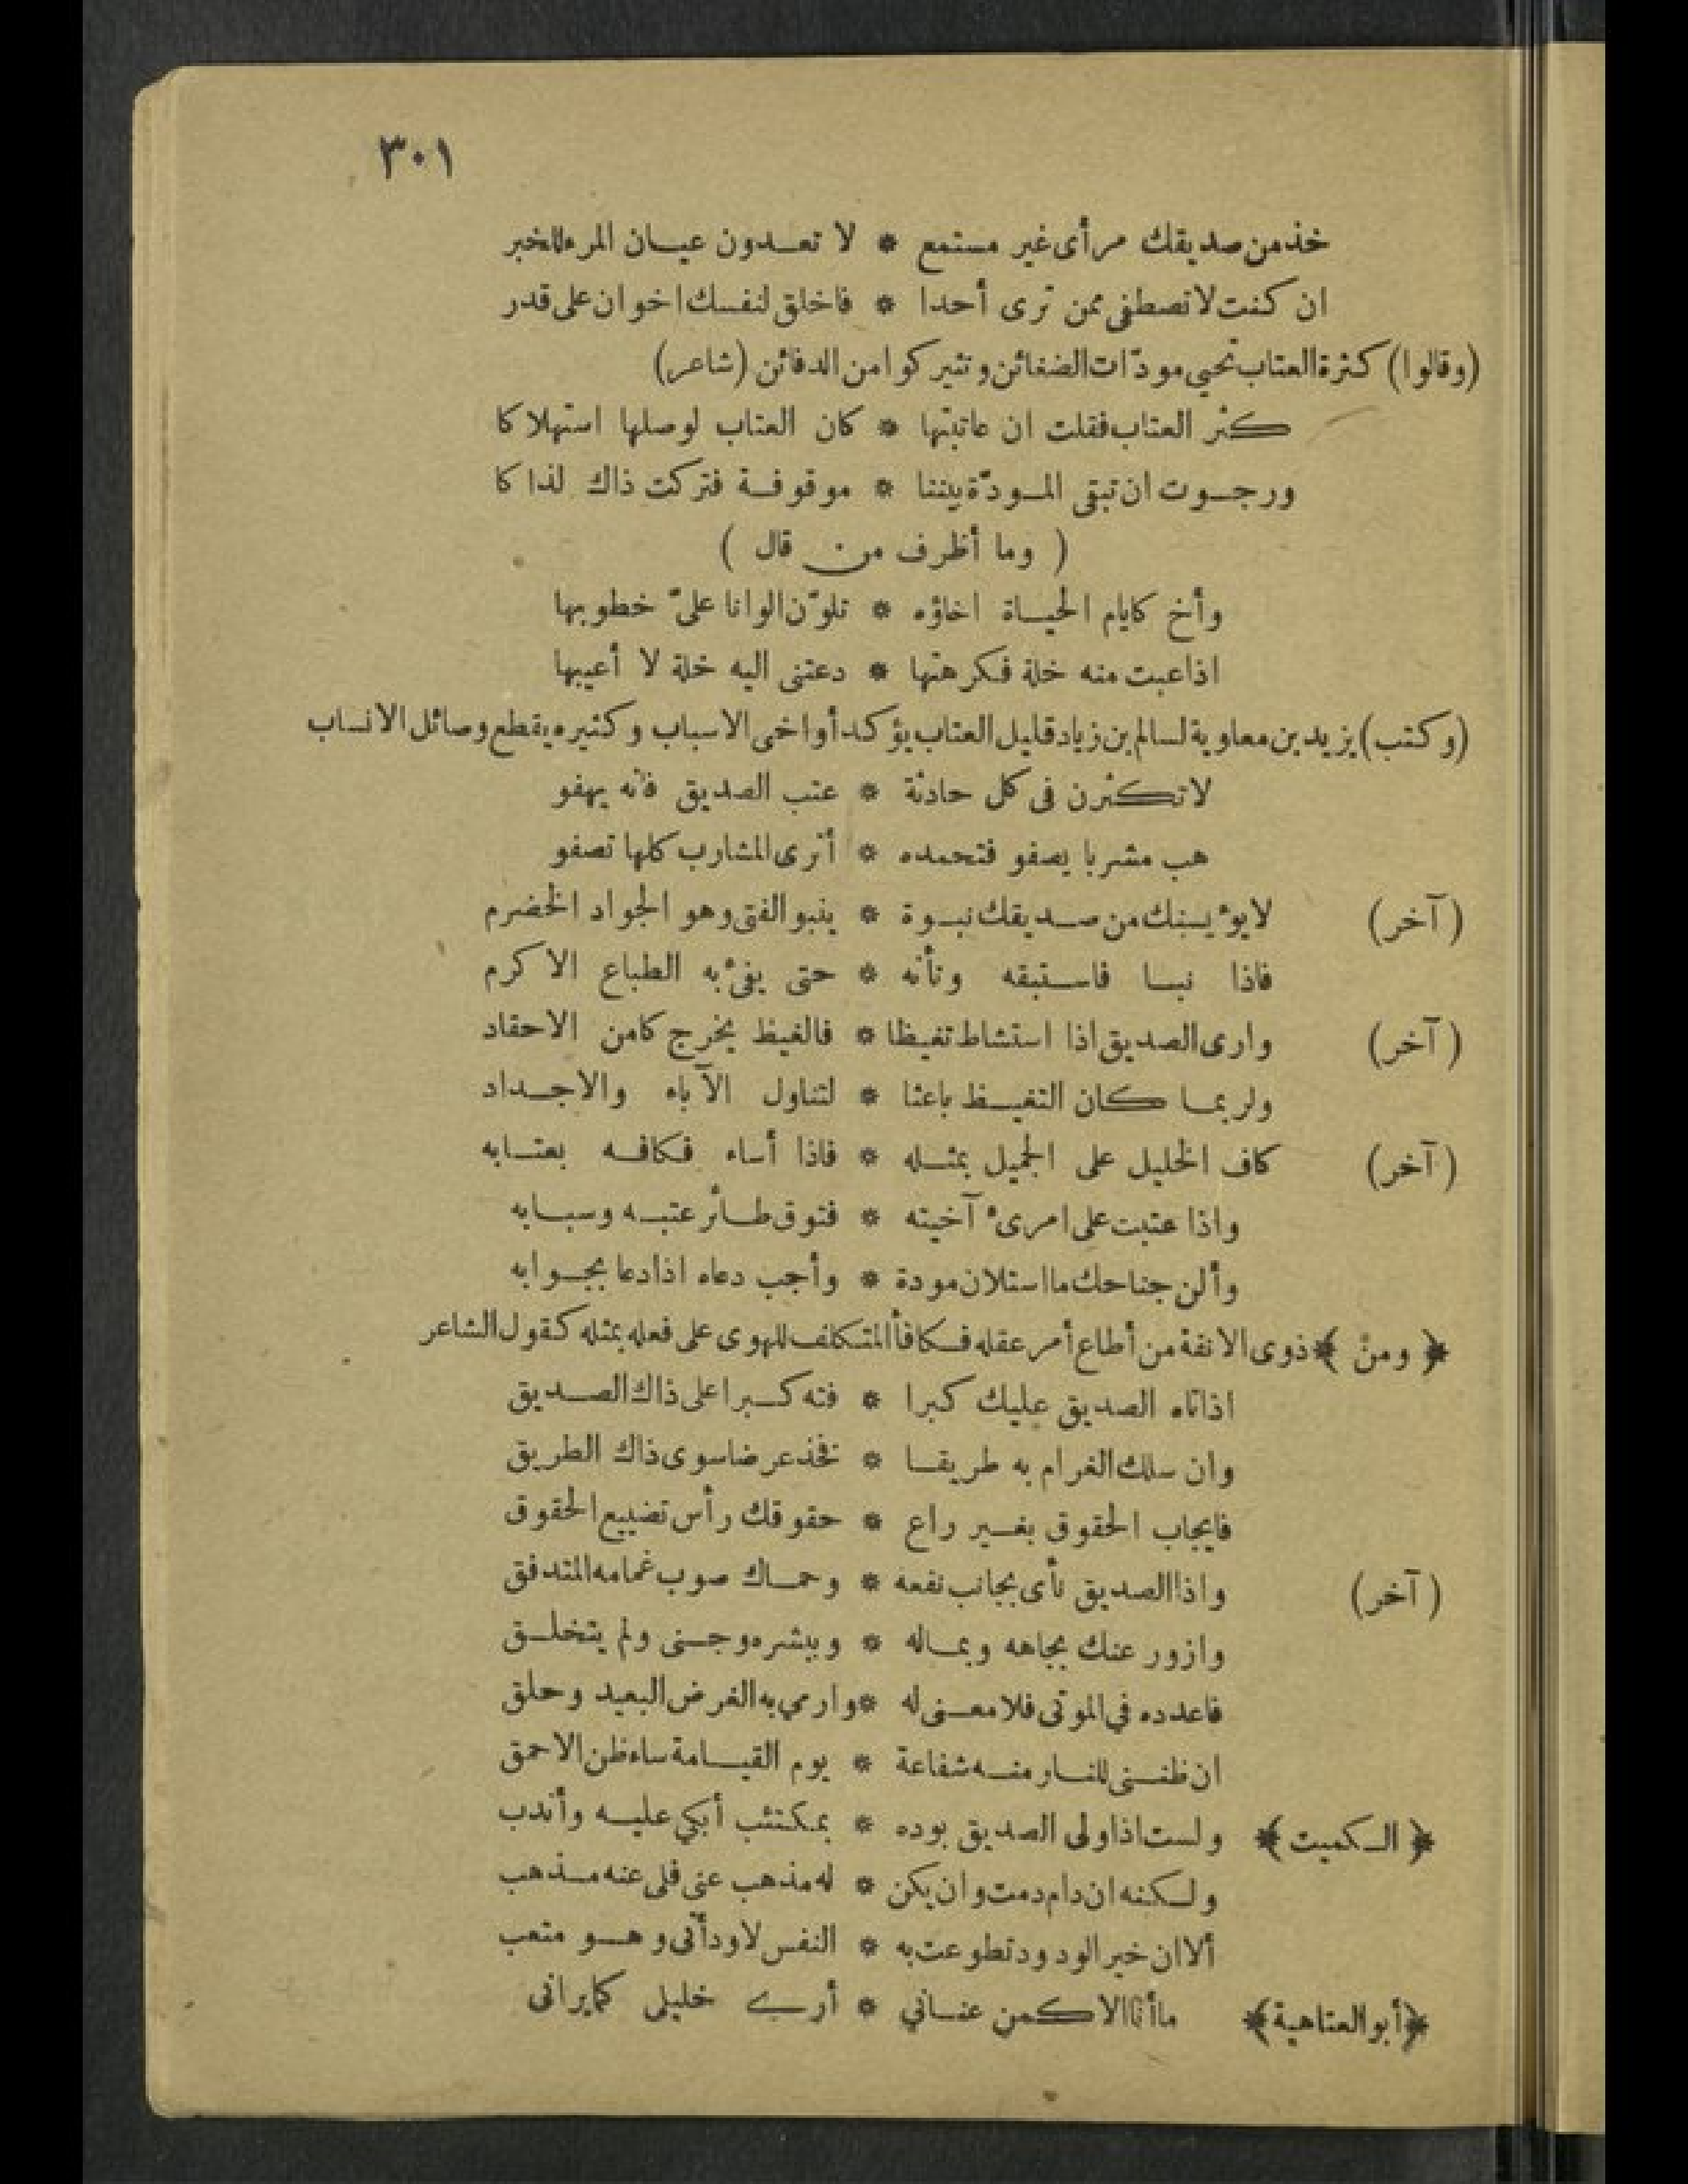 ٣٠١
خذ من صديقك مرأى غير مستمع * لا تعدون عيان المرء للخبر
ان كنت لا تصطفى ممن ترى أحدا * فاخلق لنفسك اخوان على قدر
(وقالوا) كثرة العتاب تحيى مودّات الضغائن وتثير كوامن الدفائن (شاعر)
كثر العتاب فقلت ان عاتبتها * كان العتاب لوصلها استهلاكا
ورجوت ان تبقى المودّة بيننا * موقوفة فتركت ذاك لذاكا
( وما أظرف من قال )
وأخ كايام الحياة اخاؤه * تلوّن الوانا علىّ خطوبها
اذا عبت منه خلة فكرهتها * دعتنى اليه خلة لا أعيبها
(وكتب) يزيد بن معاوية لسالم بن زياد قليل العتاب يؤكد أواخى الاسباب وكثيره يقطع وصائل الانساب
لا تكثرن فى كل حادثة * عتب الصديق فانه يهفو
هب مشربا يصفو فتحمده * أترى المشارب كلها تصفو
(آخر) لا يوئيسنك من صديقك نبوة * ينبو الفتى وهو الجواد الخضرم
فاذا نبا فاستبقه وتأنه * حتى يفئ به الطباع الاكرم
(آخر) وارى الصديق اذا استشاط تغيظا * فالغيظ يخرج كامن الاحقاد
ولربما كان التغيظ باعثا * لتناول الآباء والاجداد
(آخر) كاف الخليل على الجميل بمثله * فاذا أساء فكافه بعتابه
واذا عتبت على امرئ آخيته * فتوق طائر عتبه وسبابه
وألن جناحك ما استلان مودة * وأجب دعاه اذا دعا بجوابه
﴿ ومن ﴾ ذوى الانفة من أطاع أمر عقله فكافأ المتكلف للهوى على فعله بمثله كقول الشاعر
اذا تاه الصديق عليك كبرا * فته كبرا على ذاك الصديق
وان سلك الغرام به طريقا * فخذ عرضا سوى ذاك الطريق
فايجاب الحقوق بغير راع * حقوقك رأس تضييع الحقوق
(آخر) واذا الصديق نأى بجانب نفعه * وحماك صوب غمامه المتدفق
وازور عنك بجاهه وبماله * وببشره وجنى ولم يتخلق
فاعدده في الموتى فلا معنى له * وارمي به الغرض البعيد وحلق
ان ظننى للنار منه شفاعة * يوم القيامة ساء ظن الاحمق
﴿ الكميت ﴾ ولست اذا ولى الصديق بوده * بمكتئب أبكي عليه وأندب
ولكنه ان دام دمت وان يكن * له مذهب عنى فلى عنه مذهب
ألا ان خير الود ود تطوعت به * النفس لا ود أتى وهو متعب
﴿أبو العتاهية﴾ ما أنا الا كمن عناني * أرى خليلى كما يرانى